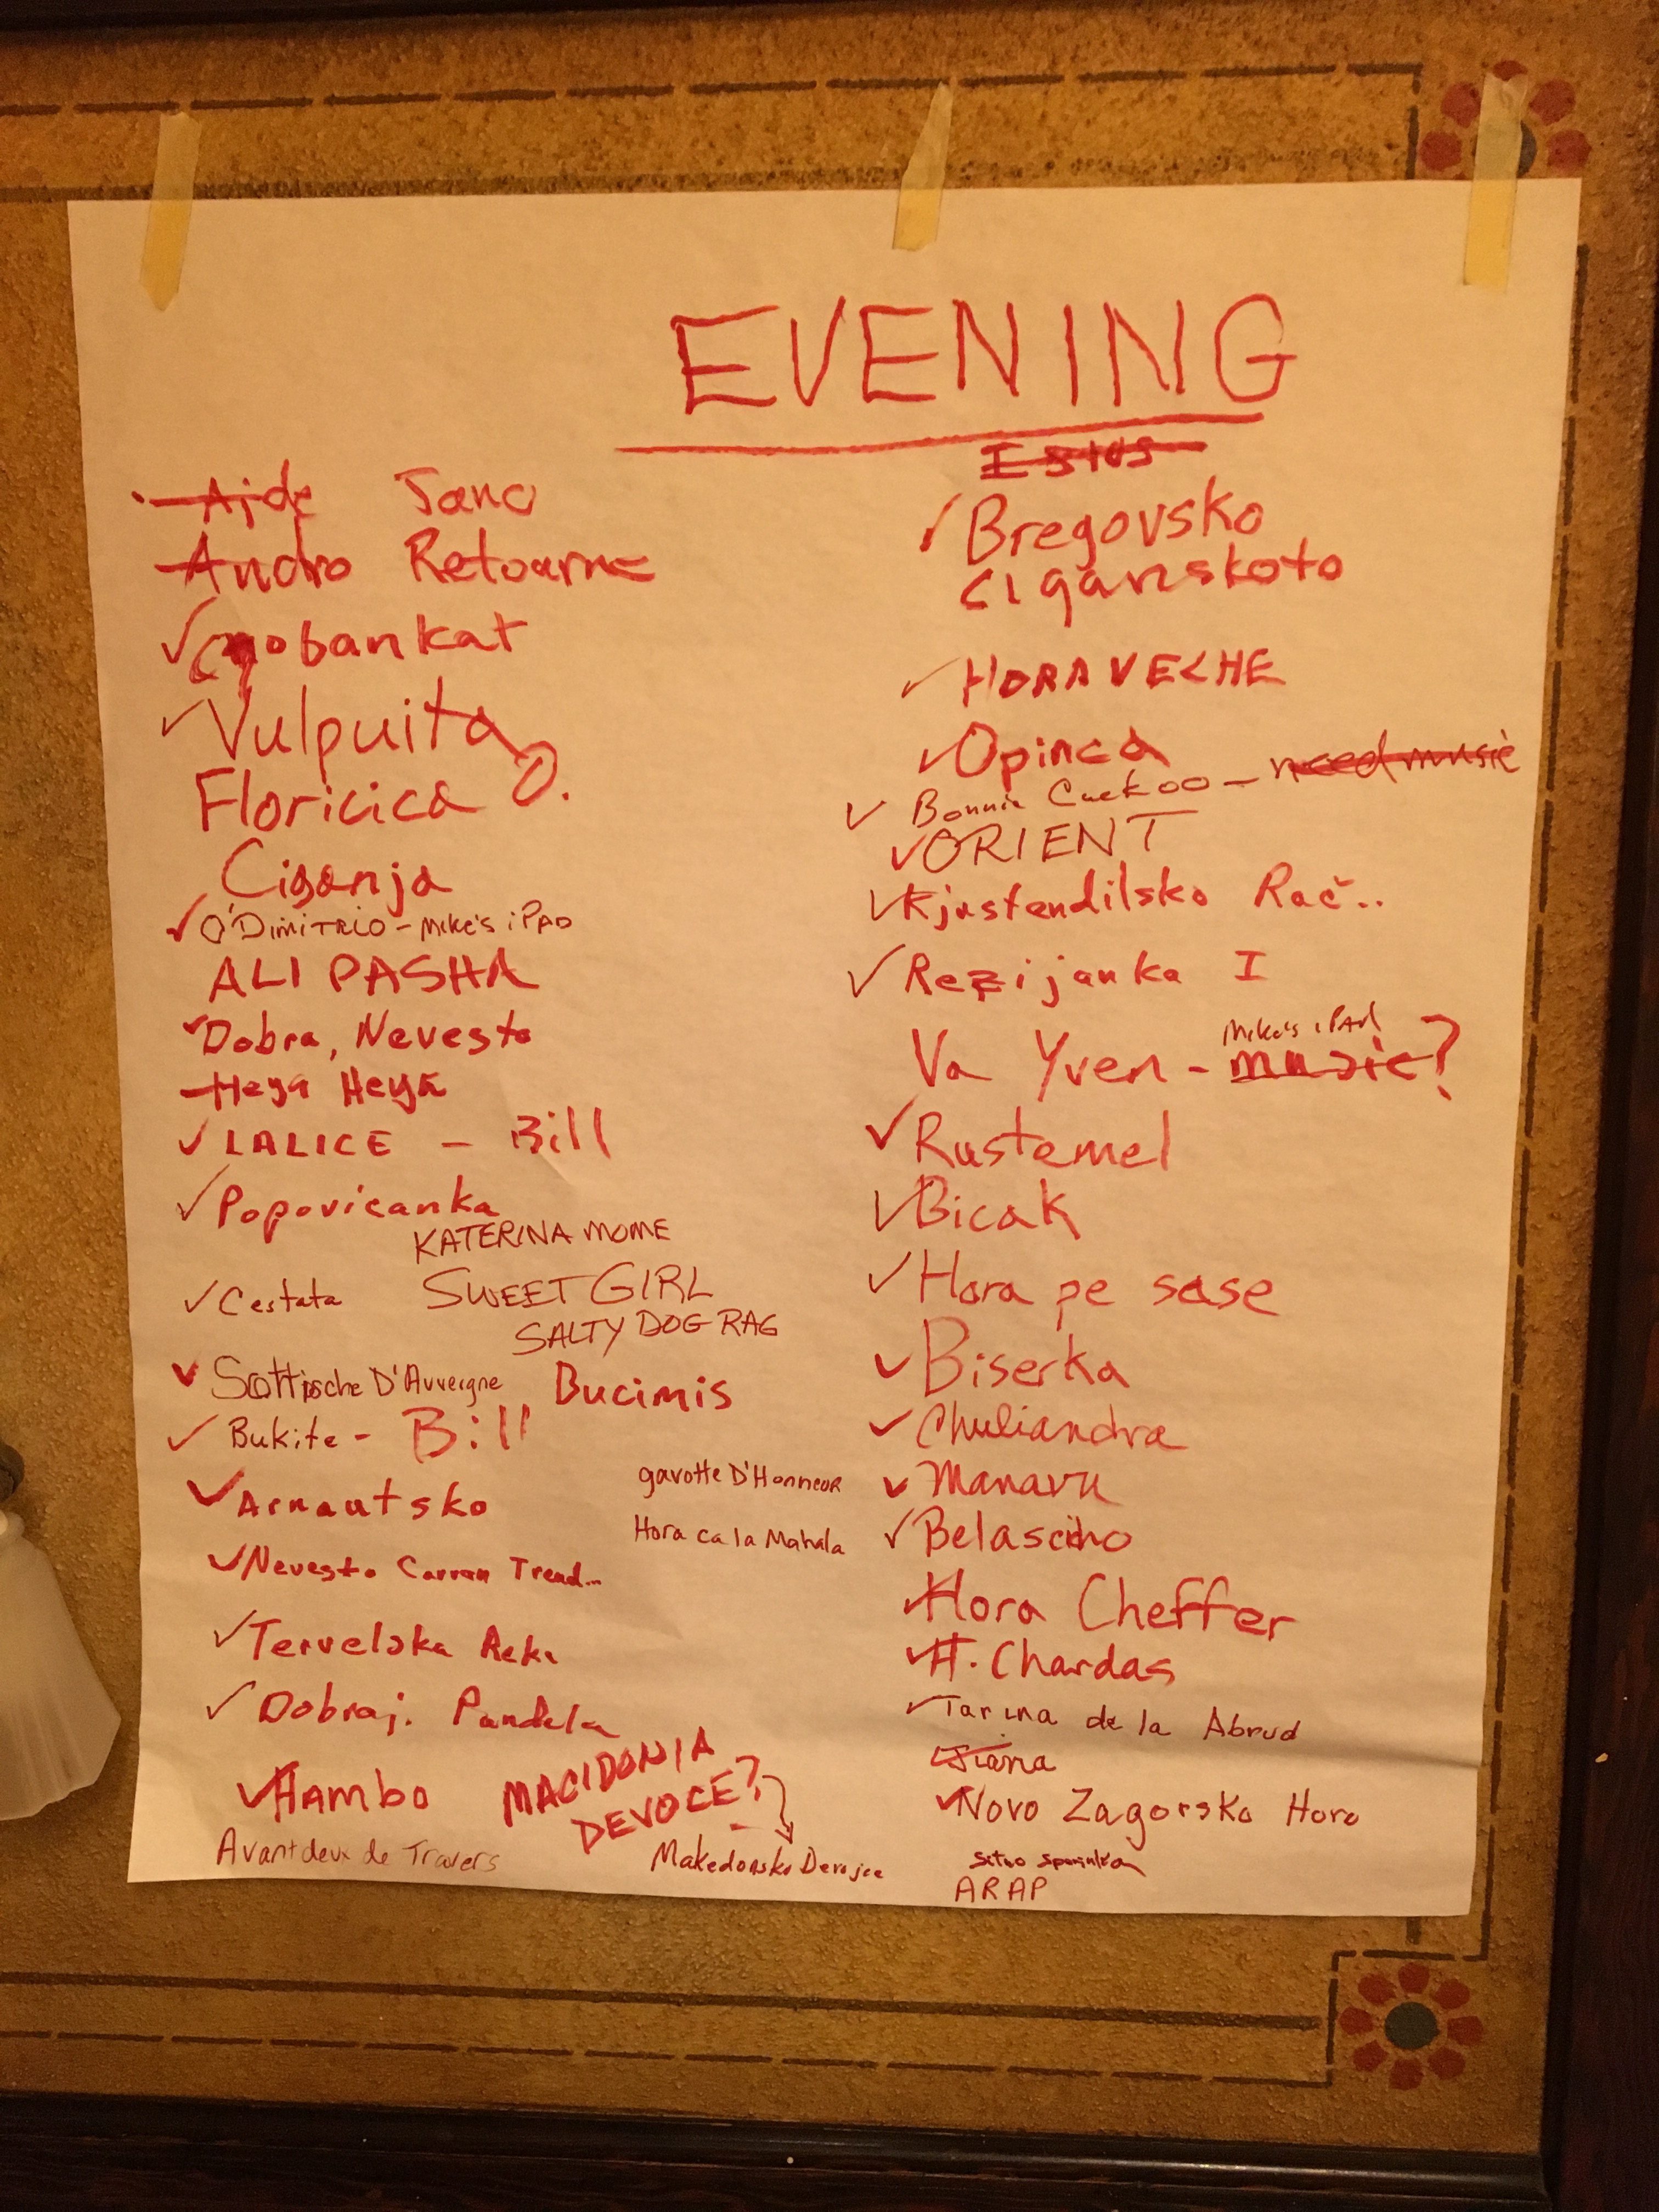 EVENING
Ajde Jano
Andro Retourne
Cobankat
Vulpuita
Floricica O.
Ciganja
O'Dimitrio - Mike's iPAD
ALI PASHA
Dobra, Nevesto
Heya Heya
LALICE - Bill
Popovicanka
KATERINA MOME
Cestata SWEET GIRL
SALTY DOG RAG
Scottische D'Auvergne Bucimis
Bukite - Bill
Arnautsko
gavotte D'Honneor
Hora ca la Mahala
Nevesto Carran Trend...
Tervelska Reka
Dobraj. Pandela
Hambo MACIDONIA
DEVOCE?
Avant deux de Travers Makedonsko Devojce
Bregovsko
ciganskoto
HORA VECHE
Opinca
Bonnie Cuckoo - need music
ORIENT
Kjustendilsko Rač..
Rezijanka I
Mike's iPAd
Va Yven - music?
Rustemel
Bicak
Hora pe sase
Biserka
Chuliandra
Manavu
Belascino
Hora Cheffer
H. Chardas
Tarina de la Abrud
Jiana
Novo Zagorsko Horo
Sitno
ARAP